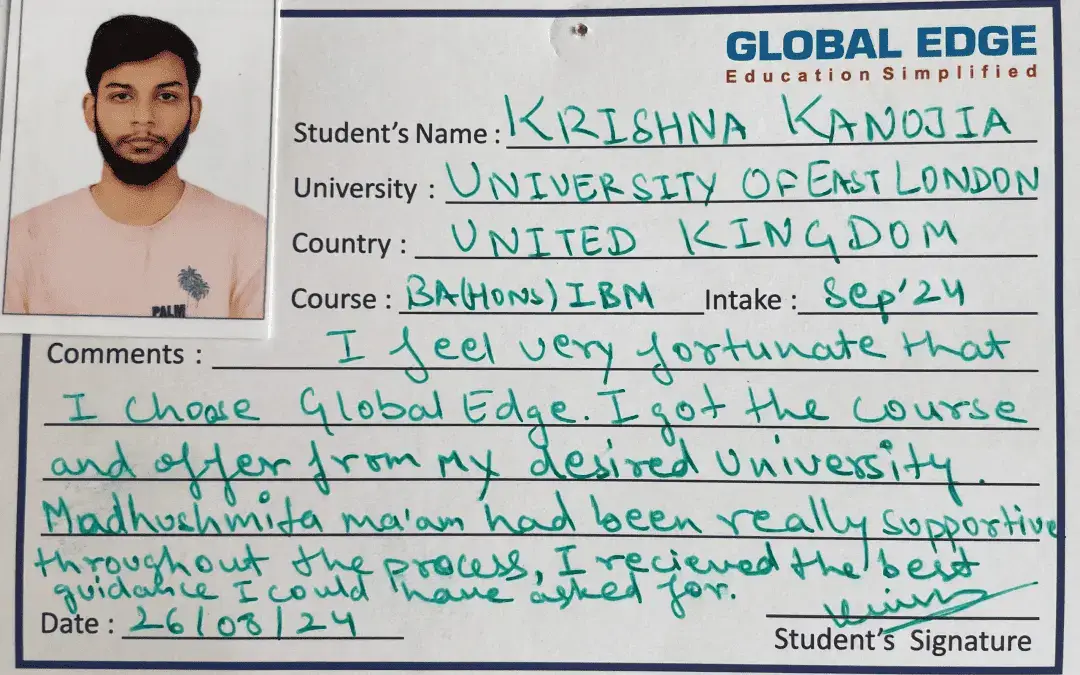 GLOBAL EDGE
Education Simplified
Student's Name : KRISHNA KANOJIA
University : UNIVERSITY OF EAST LONDON
Country : UNITED KINGDOM
Course : BA(HONS) IBM Intake : Sep'24
PALM
Comments : I feel very fortunate that
I choose Global Edge. I got the course
and offer from my desired University.
Madhushmita ma'am had been really supportive
throughout the process, I recieved the best
guidance I could have asked for.
Date : 26/08/24
Student's Signature